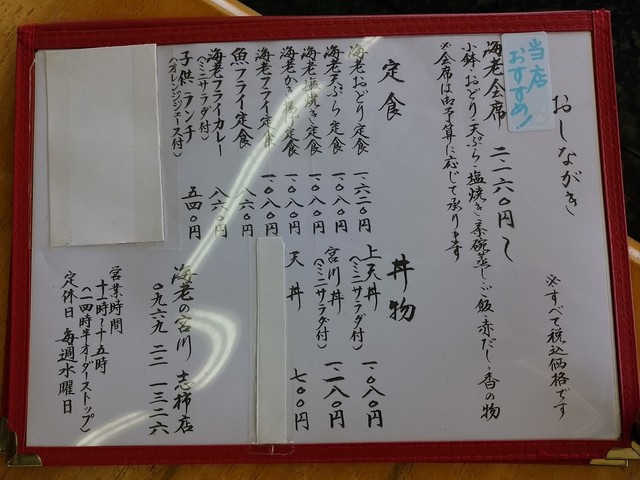 おしながき
※すべて税込価格です
当店
おすすめ!
海老会席 二一六〇円~
小鉢・おどり・天ぷら・塩焼き・茶碗蒸し・ご飯・赤だし・香の物
※会席は御予算に応じて承ります
定食
海老おどり定食 一、六二〇円
海老天ぷら定食 一、〇八〇円
海老塩焼き定食 一、〇八〇円
海老かき揚げ定食 一、〇八〇円
海老フライ定食 一、〇八〇円
魚フライ定食 八六〇円
海老フライカレー 八六〇円
(ミニサラダ付)
子供ランチ 五四〇円
(オレンジジュース付)
丼物
上天丼 一、〇八〇円
(ミニサラダ付)
宮川丼 一、二八〇円
(ミニサラダ付)
天丼 七〇〇円
海老の宮川 志柿店
〇九六九 二二 一三二六
営業時間
十一時~十五時
(一四時半オーダーストップ)
定休日 毎週水曜日